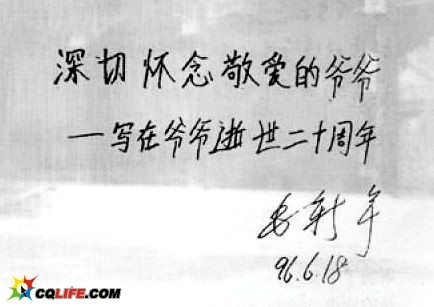 深切怀念敬爱的爷爷
—写在爷爷逝世二十周年
96.6.18
CQLIFE.COM